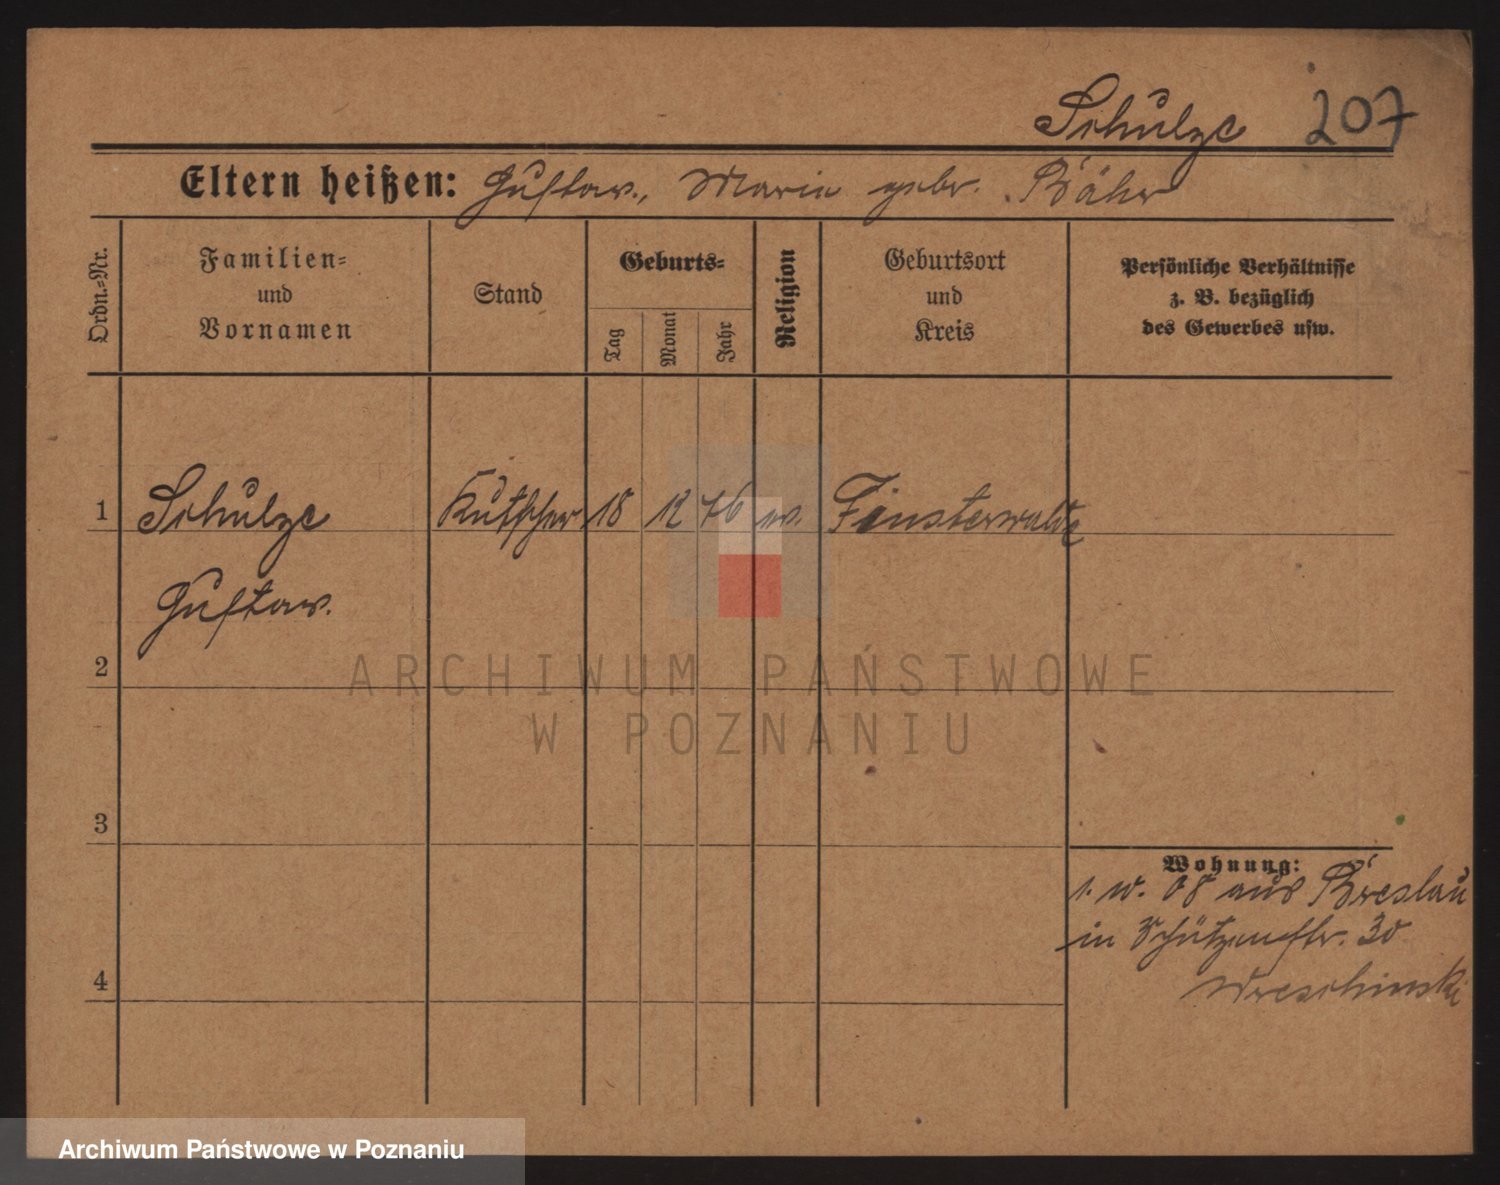 Schulze 207
Eltern heißen: Gustav, Marie gebr. Bähr
Ordn.-Nr.
Familien-
und
Vornamen
Stand
Geburts-
Tag
Monat
Jahr
Religion
Geburtsort
und
Kreis
Persönliche Verhältnisse
z. B. bezüglich
des Gewerbes usw.
1 Schulze Kutscher 18 12 76 ev. Finsterwalde
Gustav.
2
3
4
Wohnung:
1. IV. 08 aus Breslau
in Schützenstr. 30
Wreschinski
ARCHIWUM PAŃSTWOWE
W POZNANIU
Archiwum Państwowe w Poznaniu